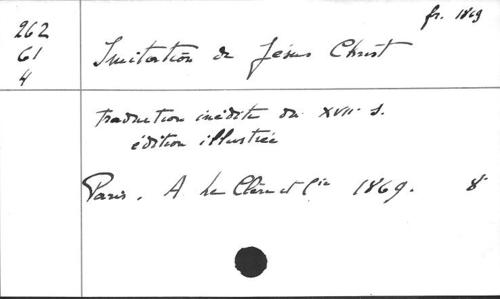 fr. 1869
262
61
4
Imitation de Jésus Christ
traduction inédite du XVII s.
édition illustrée
Paris. A. Le Clère et Cie 1869. 8°